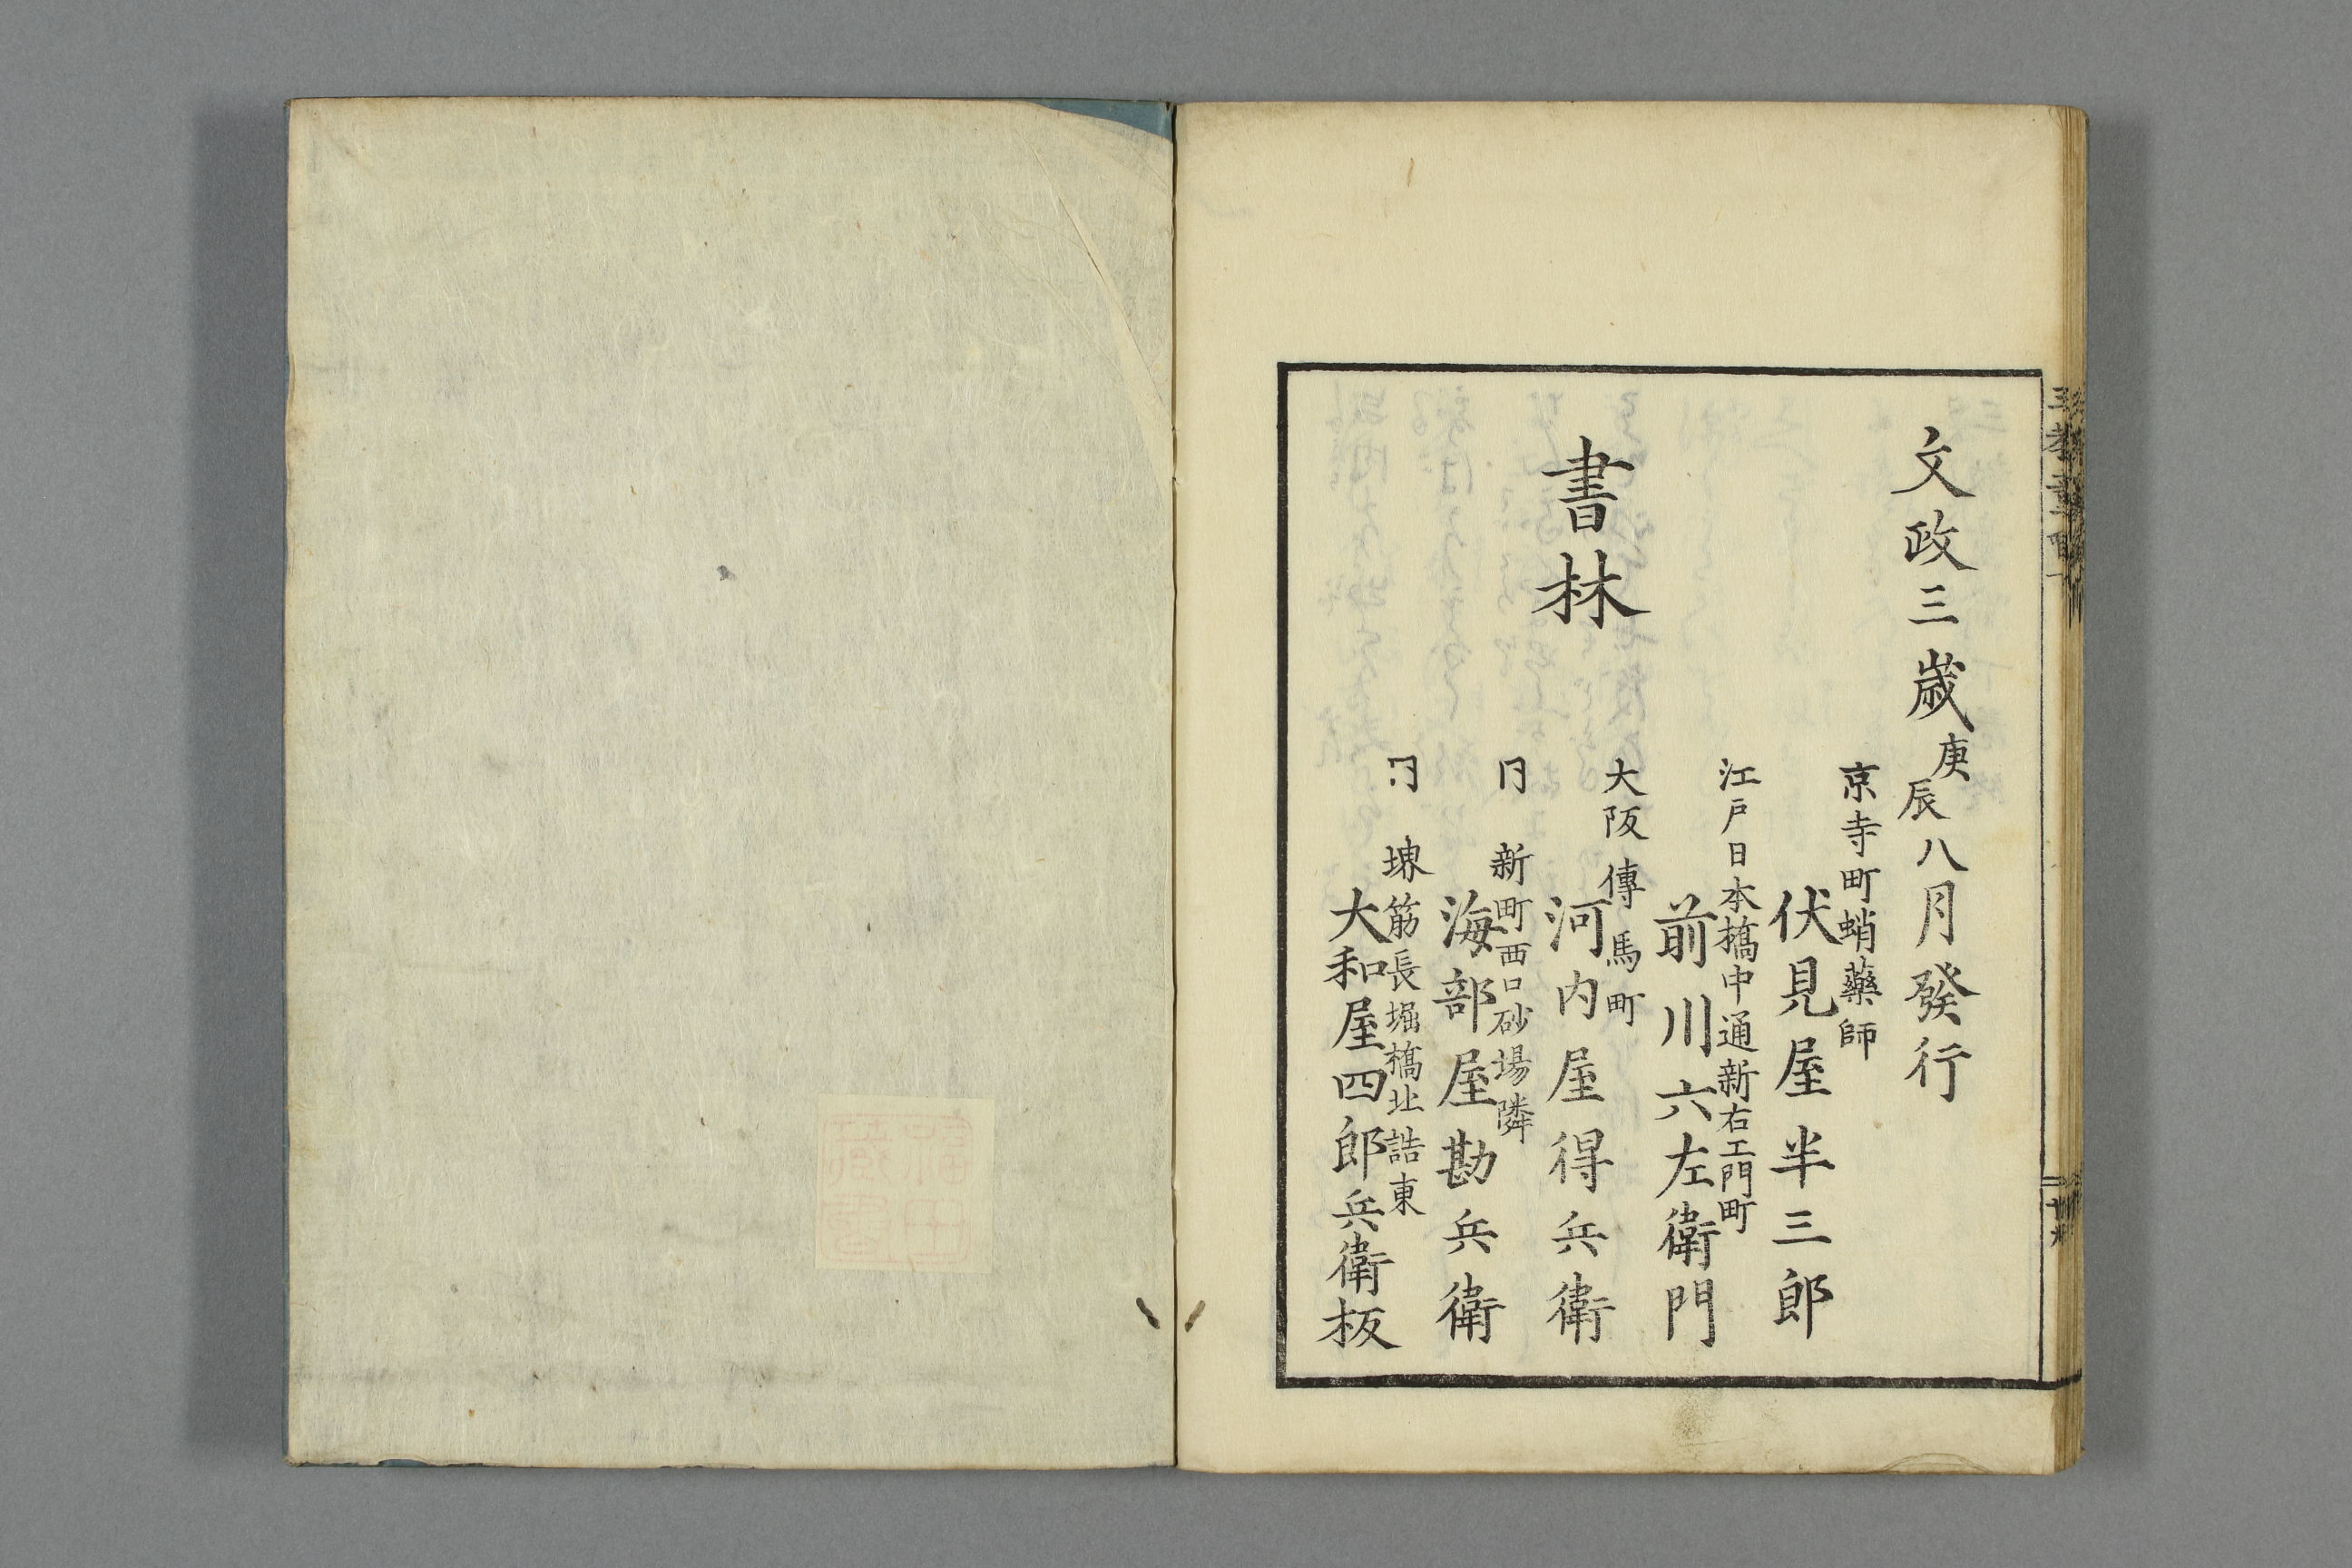 文政三歳庚辰八月發行
書林
京寺町蛸藥師
伏見屋半三郎
江戸日本橋中通新右エ門町
前川六左衛門
大阪傳馬町
河内屋得兵衛
仝新町西口砂場隣
海部屋勘兵衛
仝堺筋長堀橋北詰東
大和屋四郎兵衛板